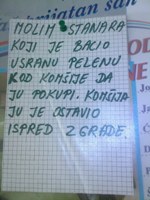 krijatan san
MOLIM STANARA
KOJI JE BACIO
USRANU PELENU
KOD KOMŠIJE DA
JU POKUPI. KOMŠIJA
JU JE OSTAVIO
ISPRED ZGRADE.